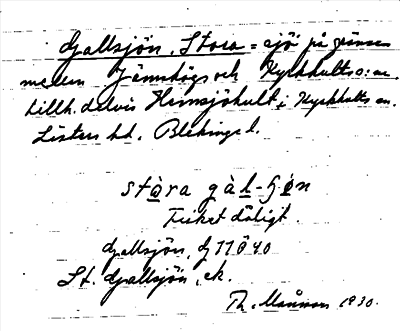 Gallsjön, Stora = sjö på gränsen
mellan Jämshögs och Kyrkhults s:nr.
tillh. delvis Hemsjöhult i Kyrkhults sn.
Listers hd. Blekinge l.
stòra gàl-ʃø̀n
Fisket dåligt.
Gallsjön, G 1840
St. Gallsjön, ek.
Th. Månsson 1930.